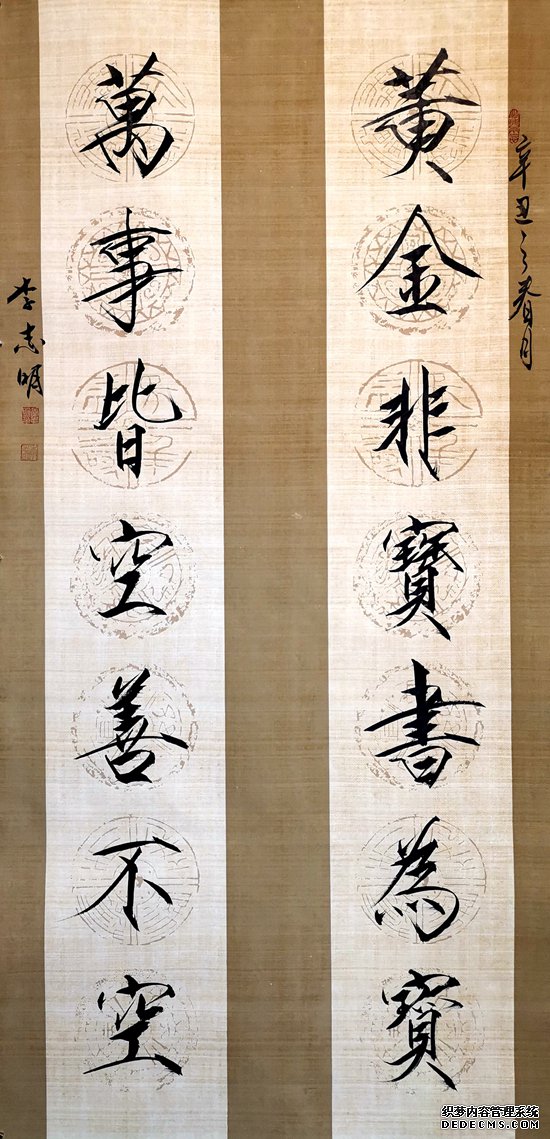 辛丑之春月
黄金非寶書為寶
萬事皆空善不空
李志明
织梦内容管理系统
DEDECMS.COM